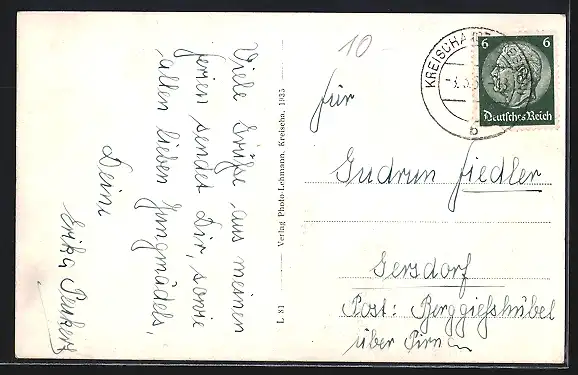 Viele Grüße aus meinen
ferien sendet Dir, sowie
allen lieben Jungmädels,
Deine
Erika
L 81 — Verlag Photo-Lehmann, Kreischa, 1935
10
KREISCHA
b
6 6
Deutsches Reich
für
Gudrun Fiedler
Gersdorf
Post: Berggießhübel
über Pirna